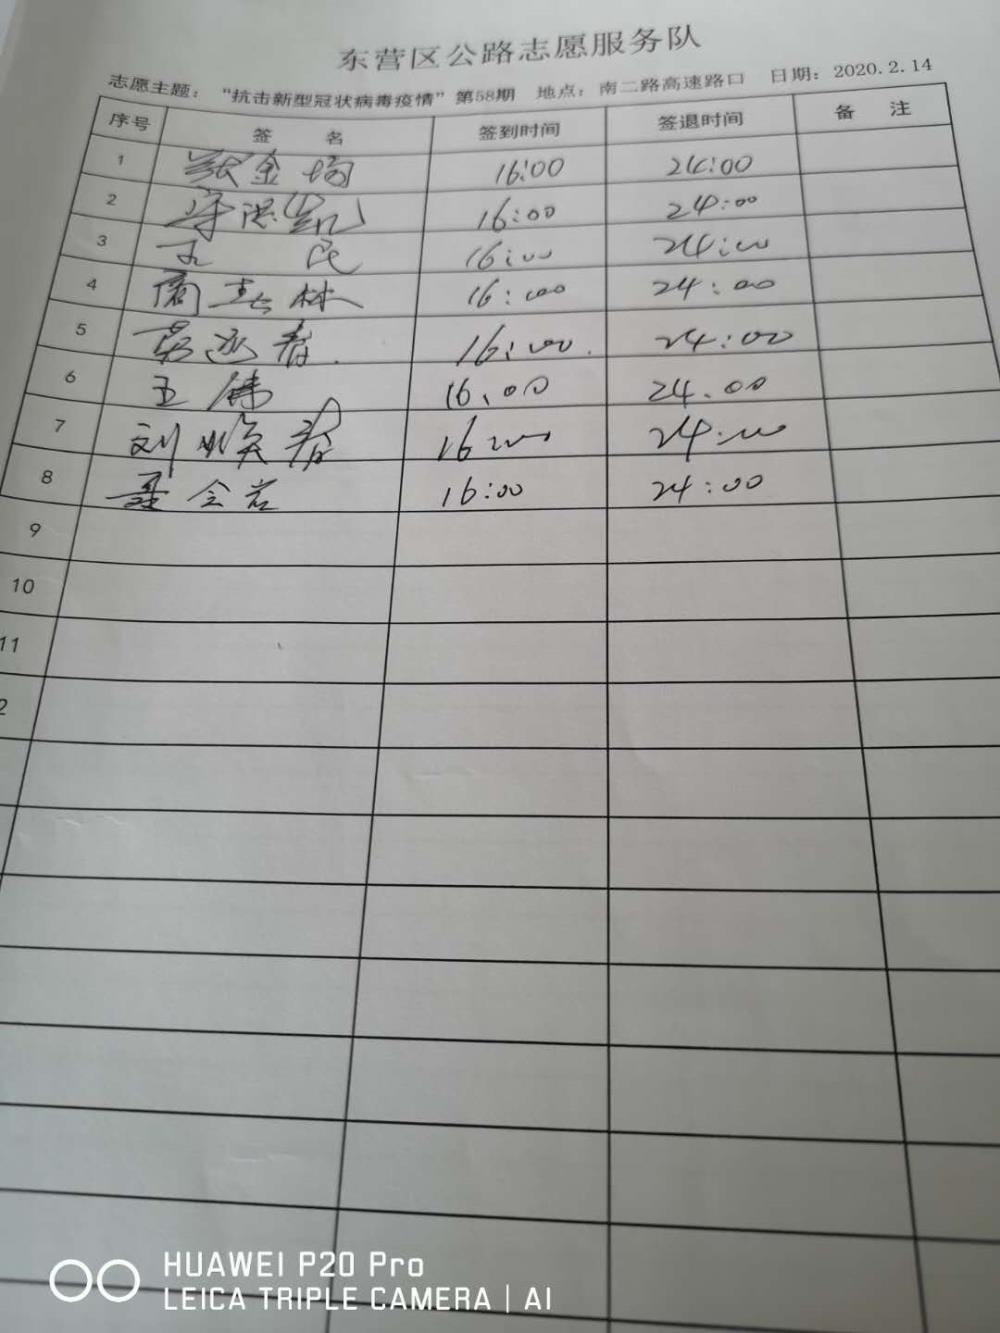 东营区公路志愿服务队
志愿主题：“抗击新型冠状病毒疫情”第58期 地点：南二路高速路口 日期：2020.2.14
序号 签 名 签到时间 签退时间 备 注
1 张金 16:00 24:00
2 16:00 24:00
3 王 民 16:00 24:00
4 林 16:00 24:00
5 春 16:00 24:00
6 王伟 16:00 24:00
7 刘焕 16:00 24:00
8 聂会岩 16:00 24:00
9
10
11
2
HUAWEI P20 Pro
LEICA TRIPLE CAMERA | AI